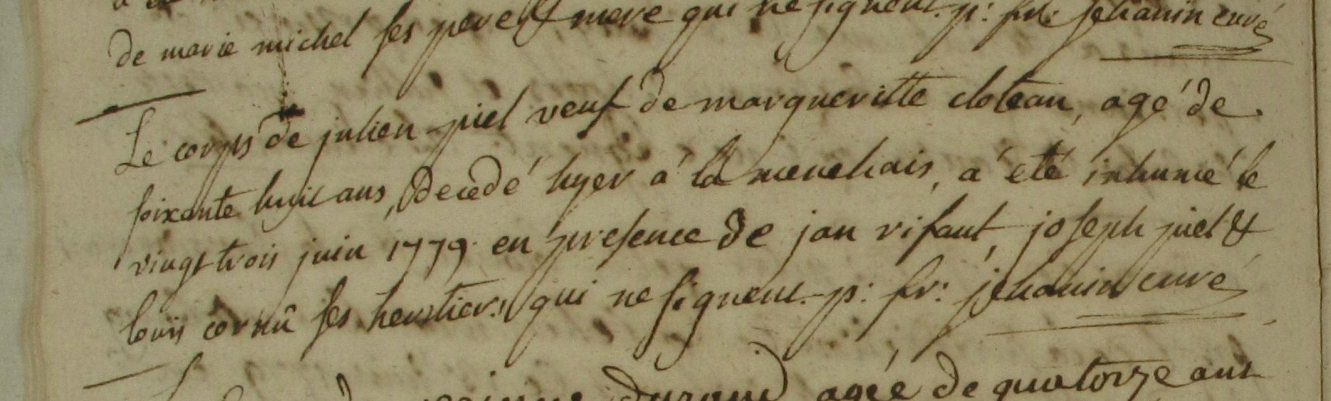 de marie michel ses pere & mere qui ne signent. p: fr: jehanin curé
Le corps de julien piel veuf de margueritte cloteau, agé de
soixante huit ans, decedé hyer à la menehais, à été inhumé le
vingt trois juin 1779 en presence de jan rifaut, joseph piel &
louis cornû ses heritiers qui ne signent. p: fr: jehanin curé
durand agée de quatorze ans